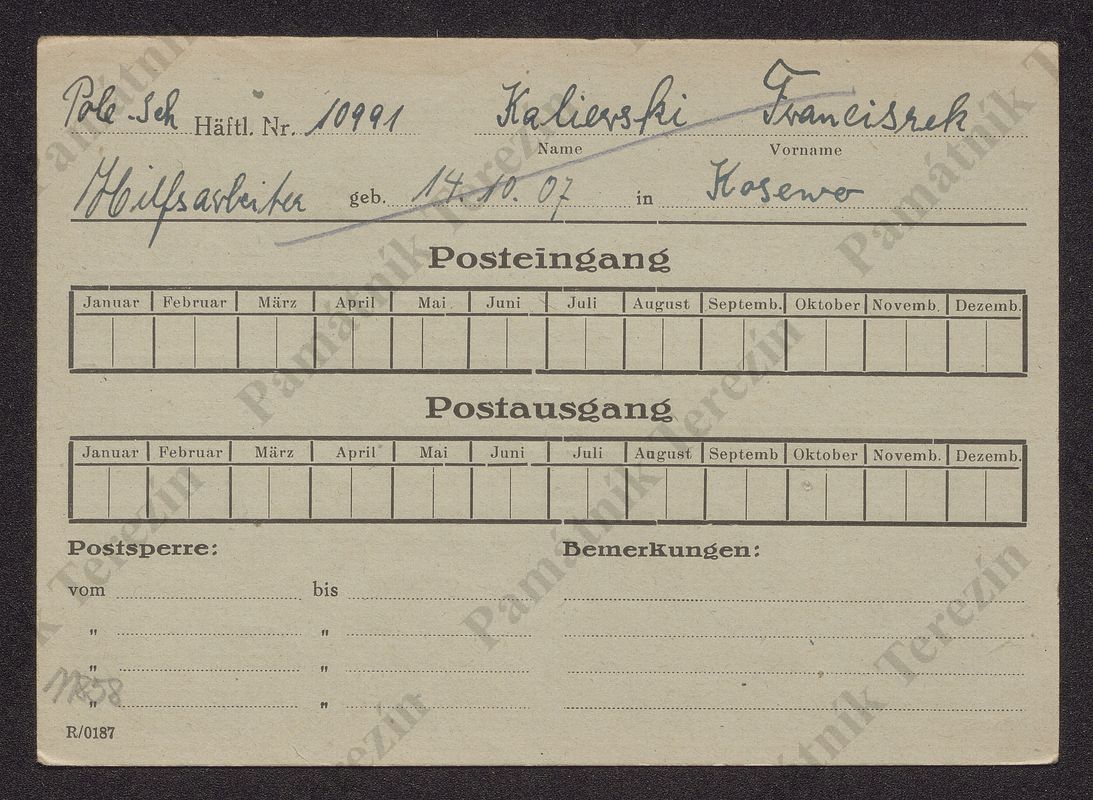 Pole - Sch Häftl. Nr. 10991 Kalierski Franciszek
Name Vorname
Hilfsarbeiter geb. 14.10.07 in Kosewo
Posteingang
Januar Februar März April Mai Juni Juli August Septemb. Oktober Novemb. Dezemb.
Postausgang
Januar Februar März April Mai Juni Juli August Septemb Oktober Novemb. Dezemb.
Postsperre: Bemerkungen:
vom bis
" "
" "
" "
R/0187
Památník Terezín